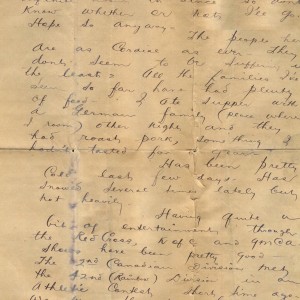 Knew whether or not, I've got
Hope so Anyway.
The people here
Are as Cordial as ever. They
dont seem to be suffering in
the least. All the families I've
seen so far have had plenty
of food. I Ate supper with
a German family (place where
I room) other night and they
had roast pork, something I
hadn't tasted for
Has been pretty
Cold last few days. Has
snowed several times lately but
not heavily.
Having quite a
bit of entertainments through
the Red Cross, K of C and YMCA.
Shows here been pretty good
The 2nd (Canadian Division met
the 42nd (Rainbow) Division in an
Athletic Contest short time ago